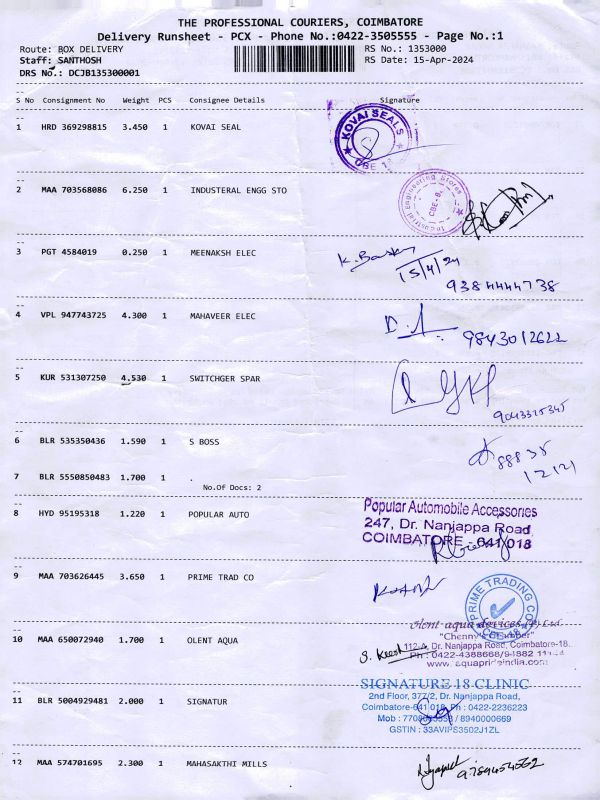 THE PROFESSIONAL COURIERS, COIMBATORE
Delivery Runsheet - PCX - Phone No.:0422-3505555 - Page No.:1
Route: BOX DELIVERY RS No.: 1353000
Staff: SANTHOSH RS Date: 15-Apr-2024
DRS No.: DCJB135300001
S No Consignment No Weight PCS Consignee Details Signature
1 HRD 369298815 3.450 1 KOVAI SEAL
KOVAI SEALS
2 MAA 703568086 6.250 1 INDUSTERAL ENGG STO
Industrial Engineering Stores
3 PGT 4584019 0.250 1 MEENAKSH ELEC
15/4/24
9384444738
4 VPL 947743725 4.300 1 MAHAVEER ELEC
9843012622
5 KUR 531307250 4.530 1 SWITCHGER SPAR
6 BLR 535350436 1.590 1 S BOSS
7 BLR 5550850483 1.700 1 .
No.Of Docs: 2
8 HYD 95195318 1.220 1 POPULAR AUTO
Popular Automobile Accessories
247, Dr. Nanjappa Road,
COIMBATORE - 641 018
9 MAA 703626445 3.650 1 PRIME TRAD CO
PRIME TRADING CO
10 MAA 650072940 1.700 1 OLENT AQUA
Olent aqua devices (P) Ltd
112-A, Dr. Nanjappa Road, Coimbatore-18.
www.aquaprideindia.com
11 BLR 5004929481 2.000 1 SIGNATUR
SIGNATURE 18 CLINIC
2nd Floor, 377/2, Dr. Nanjappa Road,
Coimbatore-641 018, Ph : 0422-2236223
/ 8940000669
GSTIN : 33AVIPS3502J1ZL
12 MAA 574701695 2.300 1 MAHASAKTHI MILLS